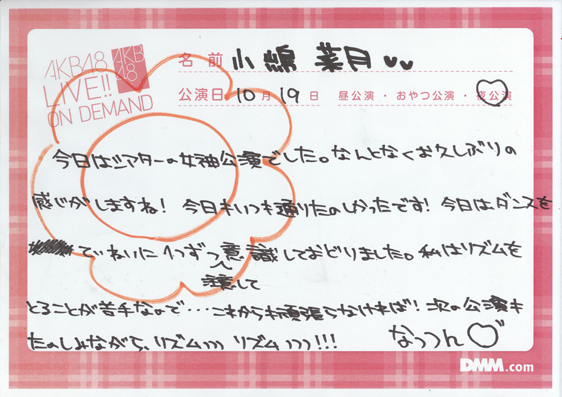 AKB48
LIVE!!
ON DEMAND
AKB
48
名前 小嶋 菜月
公演日 10月 19日 昼公演・おやつ公演・夜公演
今日はシアターの女神公演でした。なんとなくお久しぶりの
感じがしますね! 今日もいつも通りたのしかったです! 今日はダンスを
ていねいに1つずつ意識しておどりました。私はリズムを
注して
とることが苦手なので…これからも頑張らなければ! 次の公演も
たのしみながら、リズム リズム !!!
なっつん♡
DMM.com